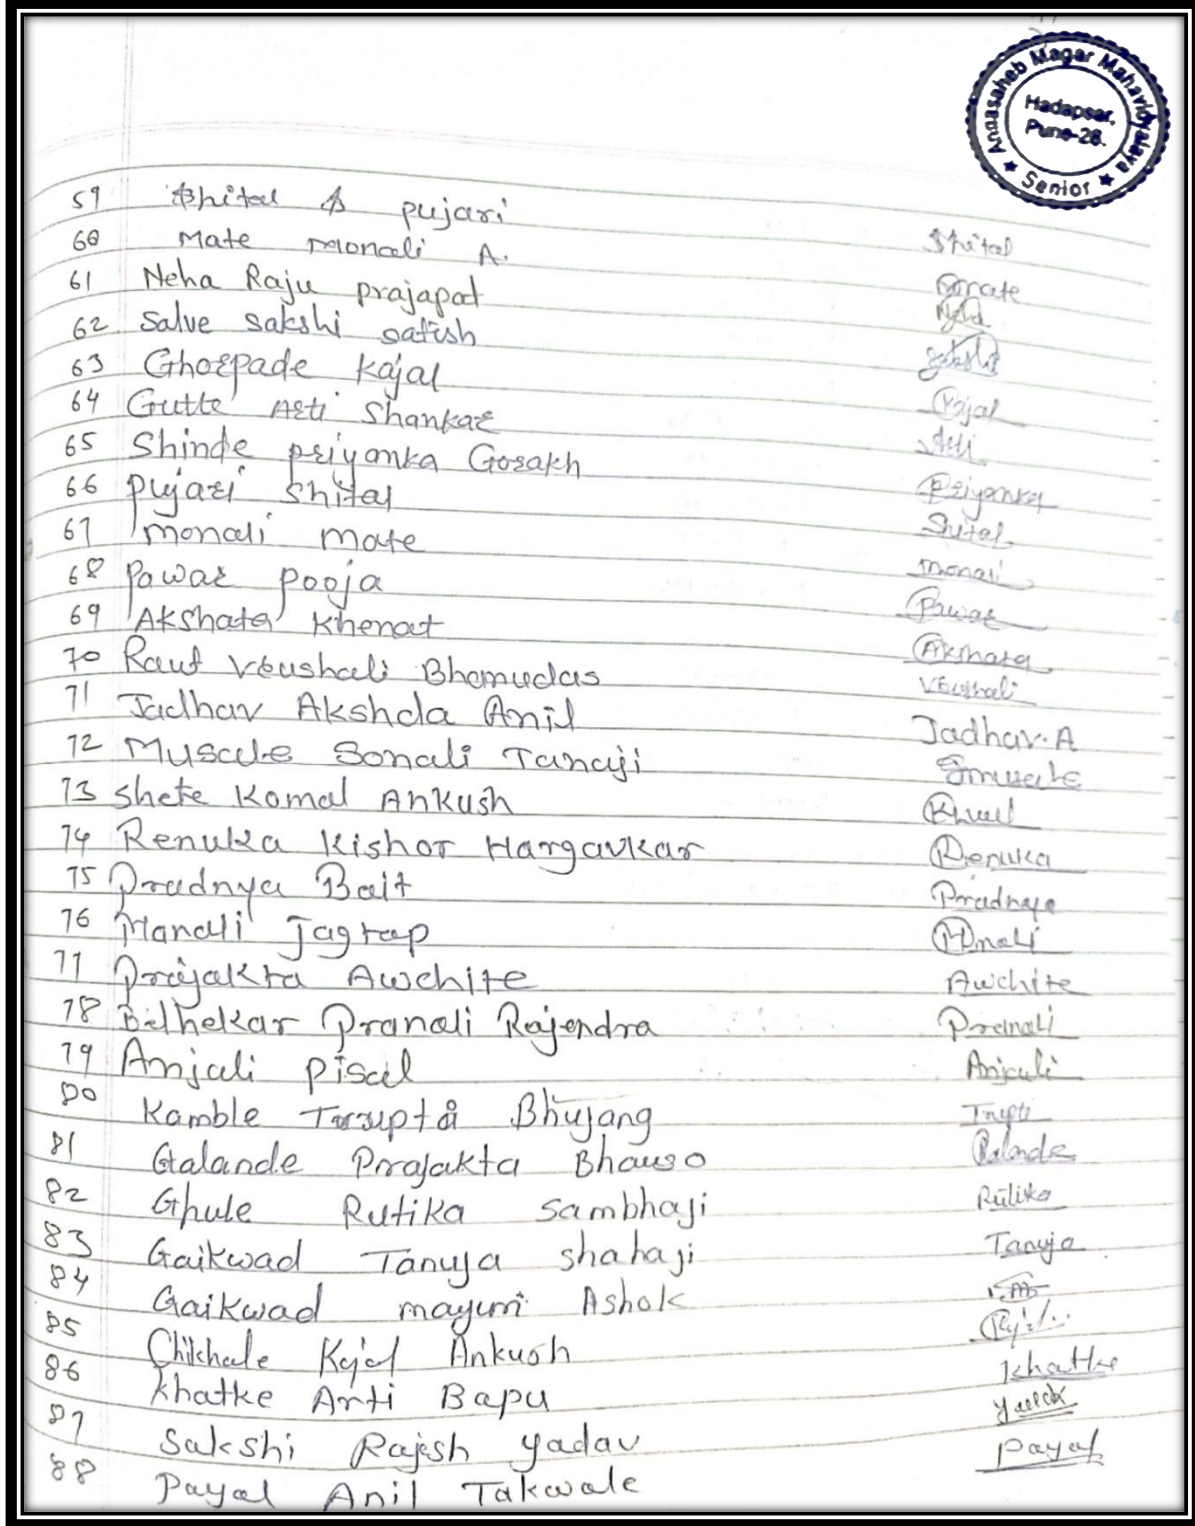 Annasaheb Magar Mahavidyalaya
Hadapsar,
Pune-28.
★ Senior ★
59 Shital S pujari Shital
60 Mate Monali A. Mate
61 Neha Raju prajapat Neha
62 Salve sakshi satish Sakshi
63 Ghorpade Kajal Kajal
64 Gutte Arti Shankar Arti
65 Shinde priyanka Gorakh Priyanka
66 Pujari Shital Shital
67 monali mate monali
68 Pawar pooja Pawar
69 Akshata Khenat Akshata
70 Raut Vrushali Bhamudas Vrushali
71 Jadhav Akshda Anil Jadhav.A
72 Musale Sonali Tanaji Smusale
73 Shete Komal Ankush
74 Renuka Kishor Hargavkar Renuka
75 Pradnya Bait Pradnya
76 Manali Jagtap
77 Prajakta Awchite Awchite
78 Belhekar Pranali Rajendra Pranali
79 Anjali pisal Anjali
80 Kamble Bhujang Trupti
81 Galande Prajakta Bhauso Galande
82 Ghule Rutika Sambhaji Rutika
83 Gaikwad Tanuja shahaji Tanuja
84 Gaikwad mayuri Ashok
85 Chikhale Kajal Ankush
86 khatke Arti Bapu Khatke
87 Sakshi Rajesh yadav
88 Payal Anil Takwale Payal